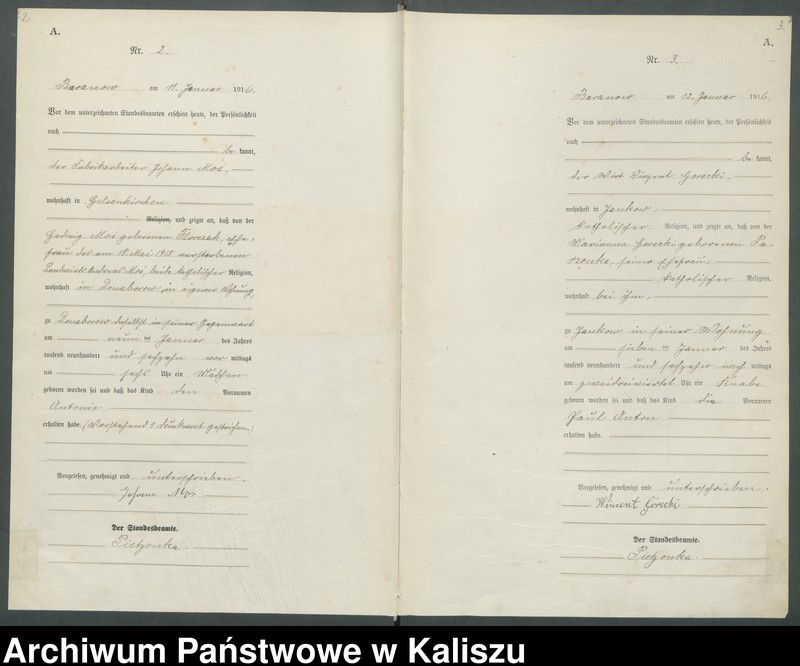 2.
A.
Nr. 2.
Baranow am 11. Januar 1916.
Vor dem unterzeichneten Standesbeamten erschien heute, der Persönlichkeit
nach
be kannt,
der Fabrikarbeiter Johann Moś,
wohnhaft in Gelsenkirchen
Religion, und zeigte an, daß von der
Hedwig Moś geborenen Florczak, Ehe-
frau des am 18. Mai verstorbenen
Landwirts Andreas Moś, beide katholischer Religion,
wohnhaft in Donaborow in eigener Wohnung,
zu Donaborow daselbst in seiner Gegenwart
am neun ten Januar des Jahres
tausend neunhundert und sechzehn vor mittags
um sechs Uhr ein Mädchen
geboren worden sei und daß das Kind den Vornamen
Antonie
erhalten habe. (Vorstehend 1 Druckwort gestrichen.)
Vorgelesen, genehmigt und unterschrieben.
Johann Moś
Der Standesbeamte.
Pietzonka
3.
A.
Nr. 3.
Baranow am 12. Januar 1916.
Vor dem unterzeichneten Standesbeamten erschien heute, der Persönlichkeit
nach
be kannt,
der Wirt Vinzent Gorecki,
wohnhaft in Jankow,
katholischer Religion, und zeigte an, daß von der
Marianna Gorecki geborenen
seiner Ehefrau,
katholischer Religion,
wohnhaft bei ihm,
zu Jankow in seiner Wohnung
am sieben ten Januar des Jahres
tausend neunhundert und sechzehn nach mittags
um zweidreiviertel Uhr ein Knabe
geboren worden sei und daß das Kind die Vornamen
Paul Anton
erhalten habe.
Vorgelesen, genehmigt und unterschrieben.
Wincent Górecki
Der Standesbeamte.
Pietzonka.
Archiwum Państwowe w Kaliszu